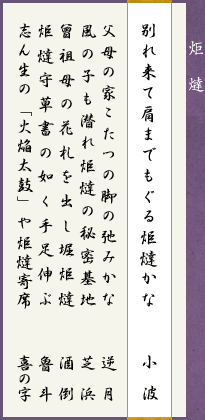 炬燵
別れ来て肩までもぐる炬燵かな　小波
父母の家こたつの脚の弛みかな　逆月
風の子も潜れ炬燵の秘密基地　芝浜
曾祖母の花札を出し堀炬燵　酒倒
炬燵守草書の如く手足伸ぶ　魯斗
志ん生の「火焔太鼓」や炬燵寄席　喜の字